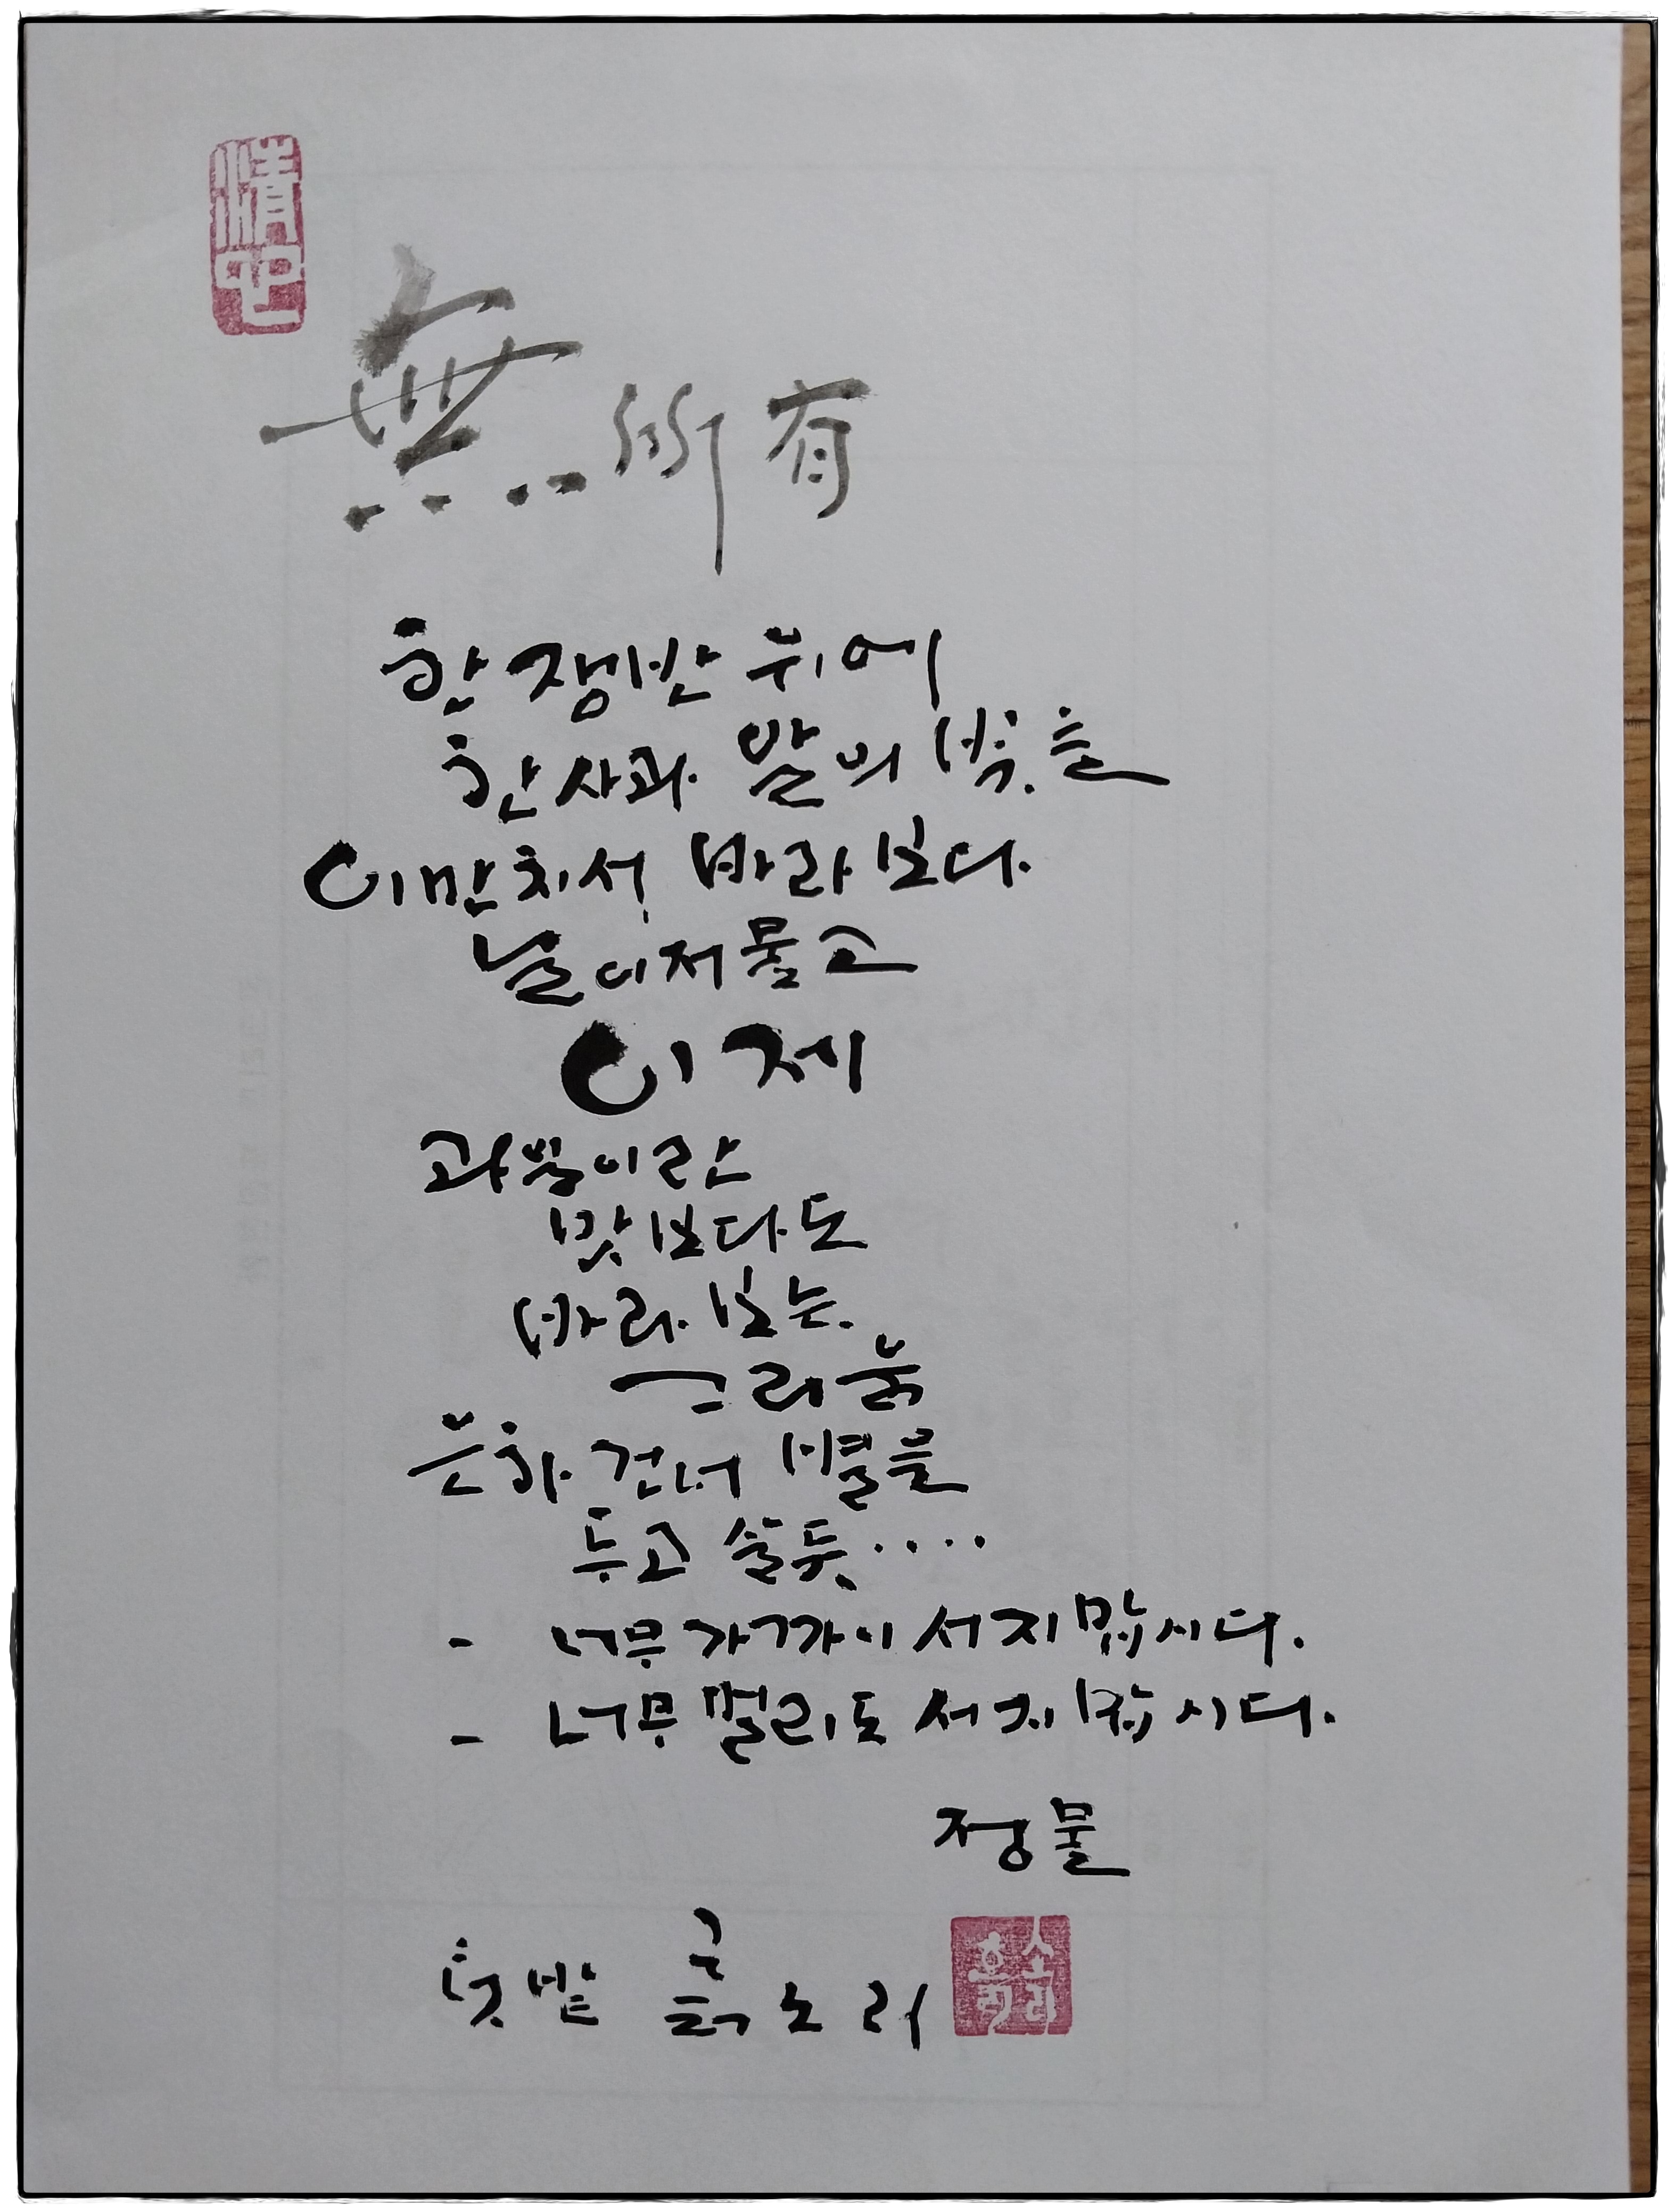 清中
無所有
한 쟁반 위에
한 사과 알의 빛을
이만치서 바라보다.
날이 저물고
이제
과향이란
맛보다도
바라보는
그리움
은하 건너 별을
두고 살듯....
- 너무 가까이 서지 맙시다.
- 너무 멀리도 서지 맙시다.
정물
텃밭 흙소리
흙소리